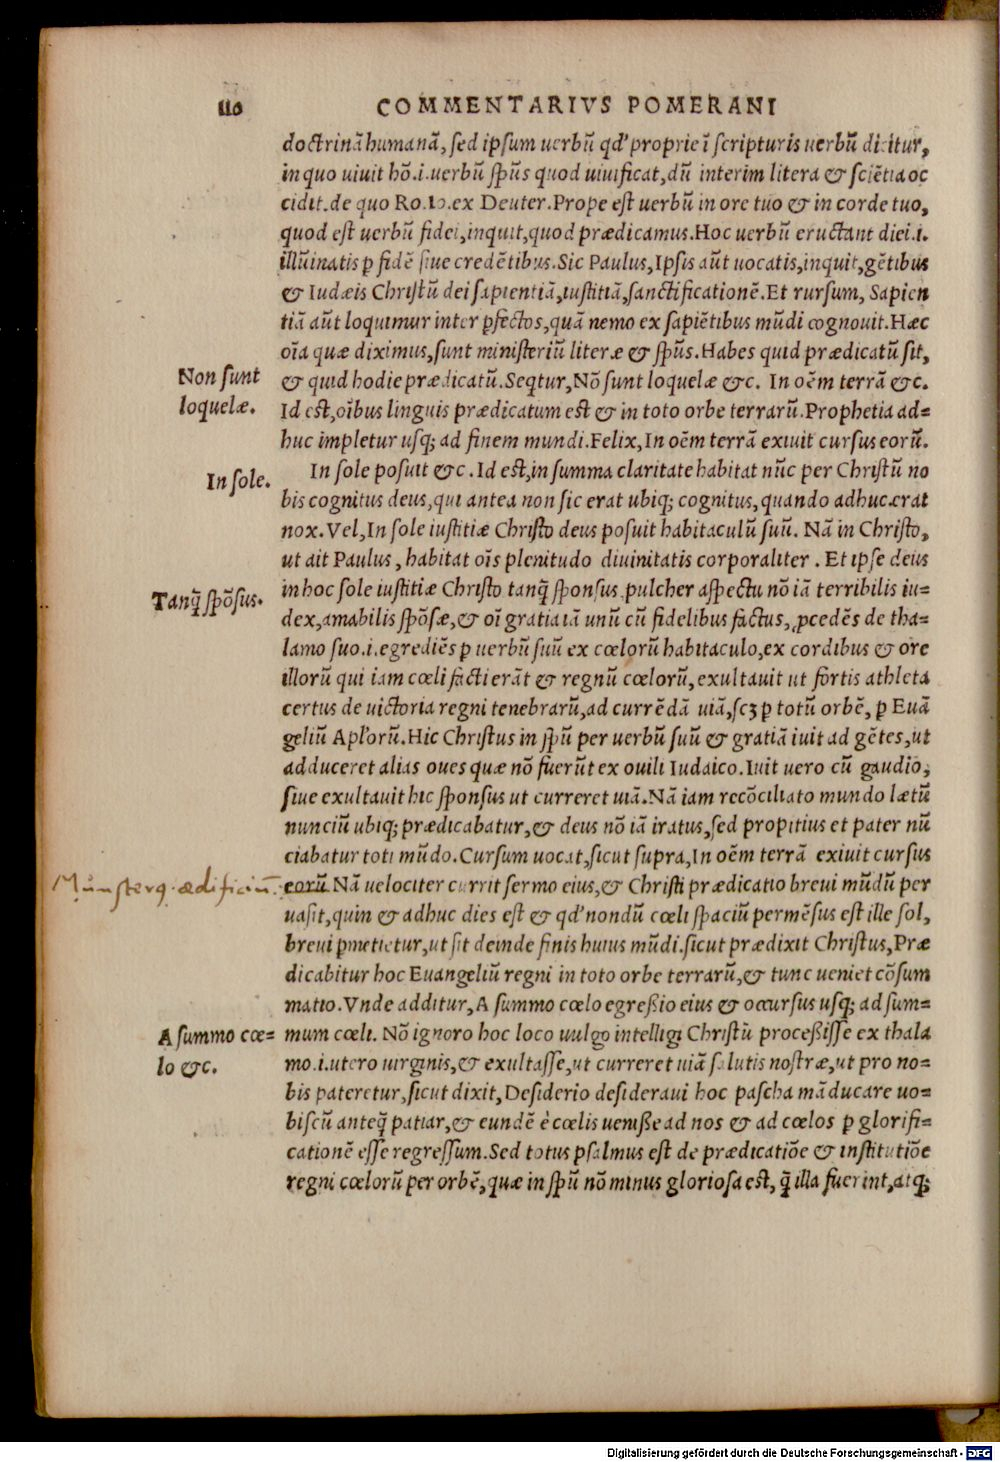 110 COMMENTARIVS POMERANI
doctrinā humanā, sed ipsum uerbū qđ proprie ī scripturis uerbū dicitur,
in quo uiuit hō.i.uerbū spūs quod uiuificat, dū interim litera & sciētia oc
cidit. de quo Ro.10.ex Deuter. Prope est uerbū in ore tuo & in corde tuo,
quod est uerbū fidei, inquit, quod prædicamus. Hoc uerbū eructant diei.i.
illūinatis p fidē siue credētibus. Sic Paulus, Ipsis aūt uocatis, inquit, gētibus
& Iudæis Christū dei sapientiā, iustitiā, sanctificationē. Et rursum, Sapien
tiā aūt loquimur inter pfectos, quā nemo ex sapiētibus mūdi cognouit. Hæc
oīa quæ diximus, sunt ministeriū literæ & spūs. Habes quid prædicatū sit,
Non sunt
loquelæ.
& quid hodie prædicatū. Seqtur, Nō sunt loquelæ &c. In oēm terrā &c.
Id est, oībus linguis prædicatum est & in toto orbe terrarū. Prophetia ad=
huc impletur usq; ad finem mundi. Felix, In oēm terrā exiuit cursus eorū.
In sole.
In sole posuit &c. Id est, in summa claritate habitat nūc per Christū no
bis cognitus deus, qui antea non sic erat ubiq; cognitus, quando adhuc erat
nox. Vel, In sole iustitiæ Christo deus posuit habitaculū suū. Nā in Christo,
ut ait Paulus, habitat oīs plenitudo diuinitatis corporaliter. Et ipse deus
Tanq̄ spōsus.
in hoc sole iustitiæ Christo tanq̄ sponsus pulcher aspectu nō iā terribilis iu=
dex, amabilis spōsæ, & oī gratia iā unū cū fidelibus factus, pcedēs de tha=
lamo suo.i.egrediēs p uerbū suū ex cœlorū habitaculo, ex cordibus & ore
illorū qui iam cœli facti erāt & regnū cœlorū, exultauit ut fortis athleta
certus de uictoria regni tenebrarū, ad currēdā uiā, scꝫ p totū orbē, p Euā
geliū Apl'orū. Hic Christus in spū per uerbū suū & gratiā iuit ad gētes, ut
adduceret alias oues quæ nō fuerūt ex ouili Iudaico. Iuit uero cū gaudio,
siue exultauit hic sponsus ut curreret uiā. Nā iam recōciliato mundo lætū
nunciū ubiq; prædicabatur, & deus nō iā iratus, sed propitius et pater nū
ciabatur toti mūdo. Cursum uocat, sicut supra, In oēm terrā exiuit cursus
Münsterꝰ ædificiū.
eorū. Nā uelociter currit sermo eius, & Christi prædicatio breui mūdū per
uasit, quin & adhuc dies est & qđ nondū cœli spaciū permēsus est ille sol,
breui pmetietur, ut sit deinde finis huius mūdi. sicut prædixit Christus, Præ
dicabitur hoc Euangeliū regni in toto orbe terrarū, & tunc ueniet cōsum
matio. Vnde additur, A summo cœlo egreßio eius & occursus usq; ad sum=
A summo cœ=
lo &c.
mum cœli. Nō ignoro hoc loco uulgo intelligi Christū proceßisse ex thala
mo.i.utero uirginis, & exultasse, ut curreret uiā salutis nostræ, ut pro no=
bis pateretur, sicut dixit, Desiderio desideraui hoc pascha māducare uo=
biscū anteq̄ patiar, & eundē è cœlis ueniße ad nos & ad cœlos p glorifi=
cationē esse regressum. Sed totus psalmus est de prædicatiōe & institutiōe
regni cœlorū per orbē, quæ in spū nō minus gloriosa est, q̄ illa fuerint, atq;
Digitalisierung gefördert durch die Deutsche Forschungsgemeinschaft - DFG